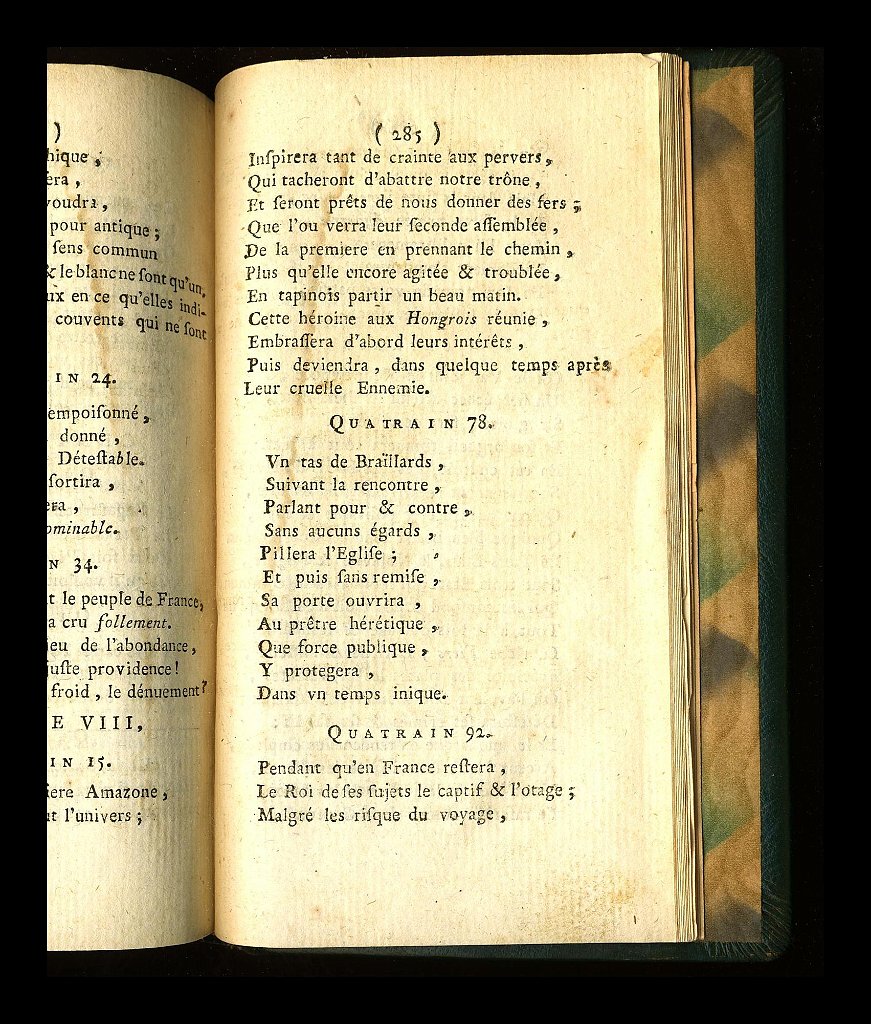 )
hique ;
era ,
voudra ,
pour antique ;
sens commun
& le blanc ne ſont qu'un,
ux en ce qu'elles indi-
couvents qui ne ſont
IN 24.
empoiſonné ,
donné ,
Déteſtable.
ſortira ,
era ,
ominable.
N 34.
t le peuple de France,
a cru follement.
ieu de l'abondance ,
juſte providence !
froid , le dénuement ?
E VIII,
IN 15.
iere Amazone ,
nt l'univers ;
( 285 )
Inſpirera tant de crainte aux pervers ,
Qui tacheront d'abattre notre trône ,
Et ſeront prêts de nous donner des fers ;
Que l'ou verra leur ſeconde aſſemblée ,
De la premiere en prennant le chemin ,
Plus qu'elle encore agitée & troublée ,
En tapinois partir un beau matin.
Cette héroine aux Hongrois réunie ,
Embraſſera d'abord leurs intérêts ,
Puis deviendra , dans quelque temps après
Leur cruelle Ennemie.
QUATRAIN 78.
Vn tas de Braïllards ,
Suivant la rencontre ,
Parlant pour & contre ,
Sans aucuns égards ,
Pillera l'Egliſe ;
Et puis ſans remiſe ,
Sa porte ouvrira ,
Au prêtre hérétique ,
Que force publique ,
Y protegera ,
Dans vn temps inique.
QUATRAIN 92.
Pendant qu'en France reſtera ,
Le Roi de ſes ſujets le captif & l'otage ;
Malgré les riſque du voyage ,